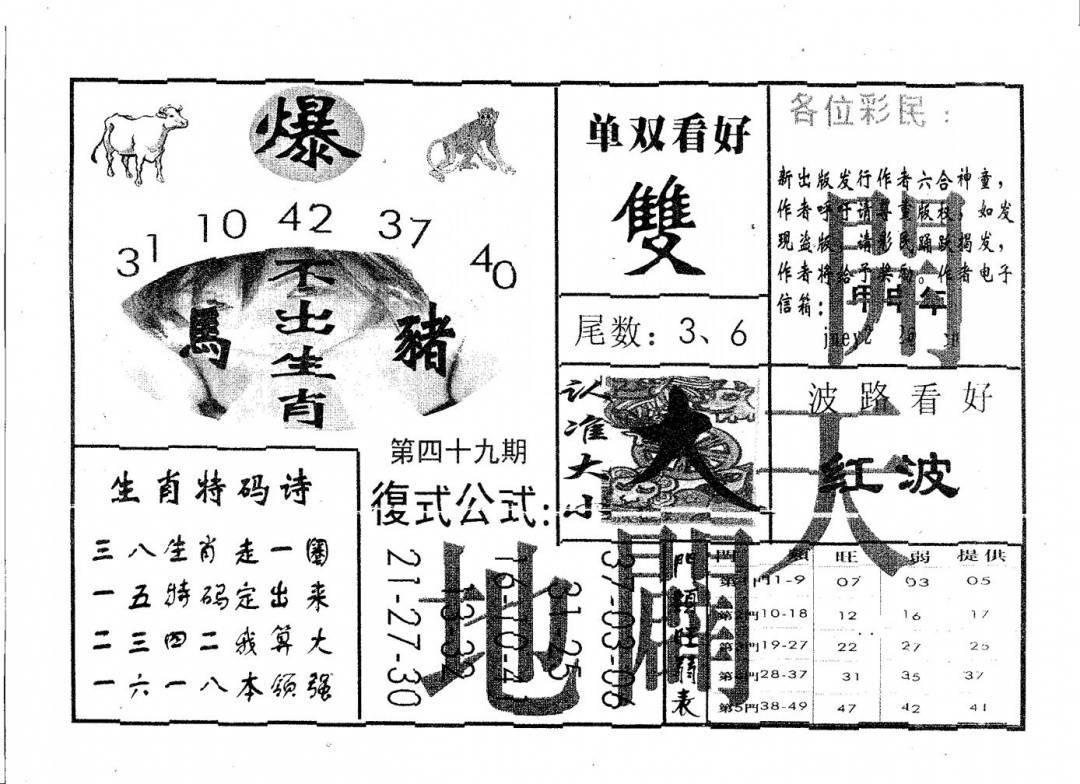 爆
31 10 42 37 40
不出生肖
馬 豬
单双看好
雙
尾数：3、6
各位彩民：
新出版发行作者六合神童，
作者呼吁请尊重版权，如发
现盗版，请彩民踊跃揭发，
作者将给予奖励。作者电子
信箱：
甲申年
開
认准大小
大
波路看好
红波
天
第四十九期
生肖特码诗
三八生肖走一圈
一五特码定出来
二三四二我算大
一六一八本领强
復式公式：
21-27-30
13-32
16-10-41
31-25
37-03-06
地
門類旺弱表
門 類 旺 弱 提供
第1門1-9 07 03 05
第2門10-18 12 16 17
第3門19-27 22 27 25
第4門28-37 31 35 37
第5門38-49 47 42 41